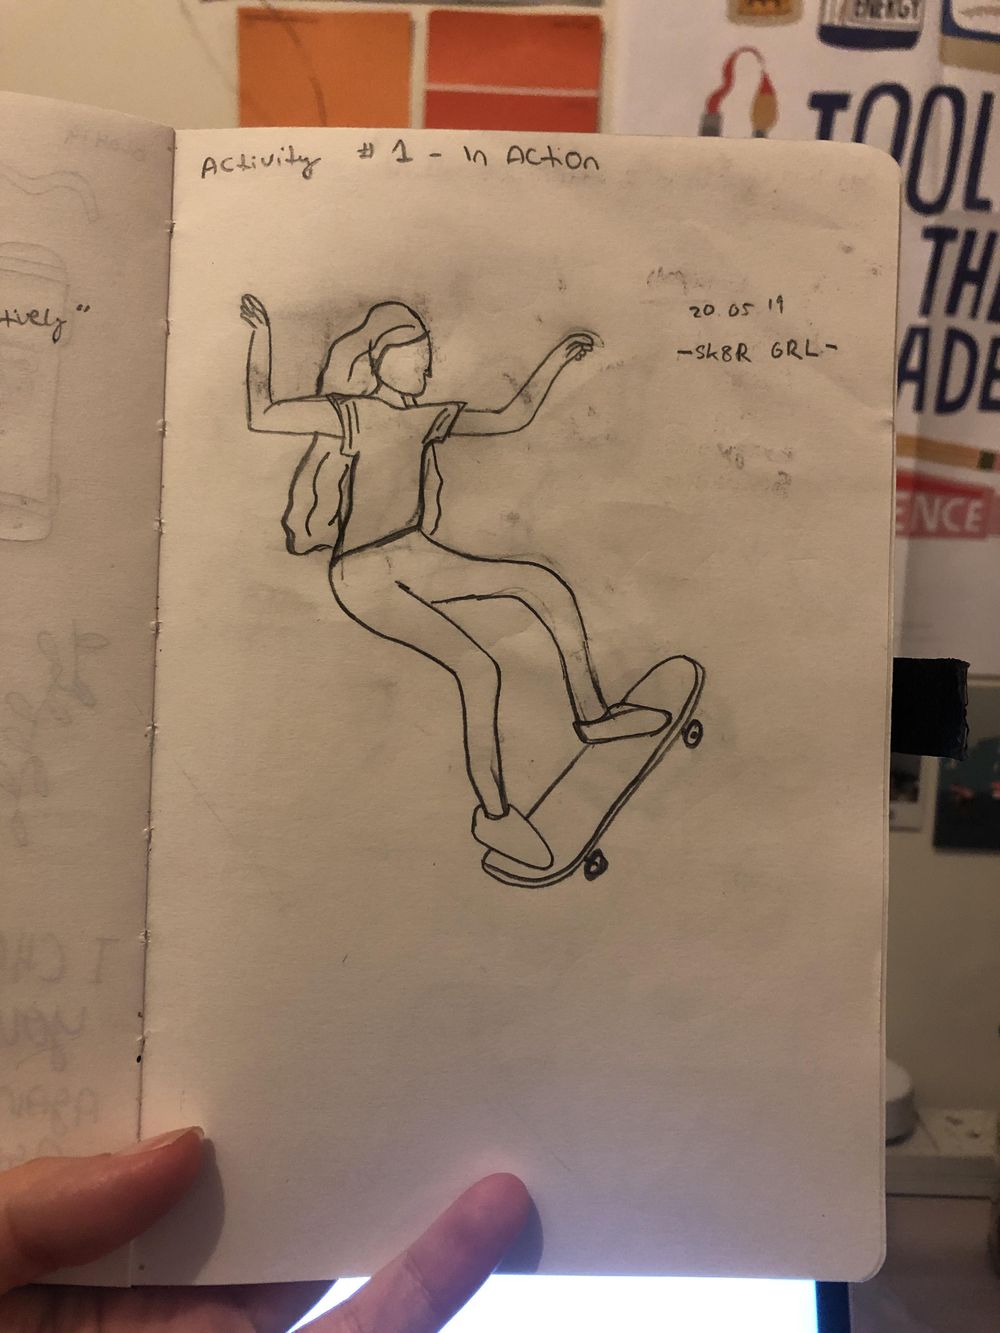 Activity # 1 - In Action
20.05 19
-SK8R GRL-
tively"
ENERGY
TOOL
THE
ADE
ENCE
I CHO
you
AGAIN